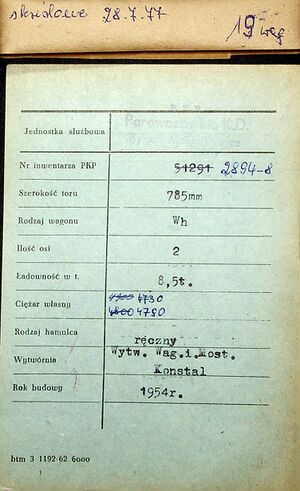 skreślono 28.7.77
19 wag
P.K.P.
Jednostka służbowa Parowozownia K.D.
Nr inwentarza PKP 51291 2894-8
Szerokość toru 785mm
Rodzaj wagonu Wh
Ilość osi 2
Ładowność w t. 8,5t.
Ciężar własny 4900 4730
4800 4780
Rodzaj hamulca ręczny
Wytwórnia Wytw. Wag.i.Most.
Konstal
Rok budowy 1954r.
btm 3 1192-62 6000